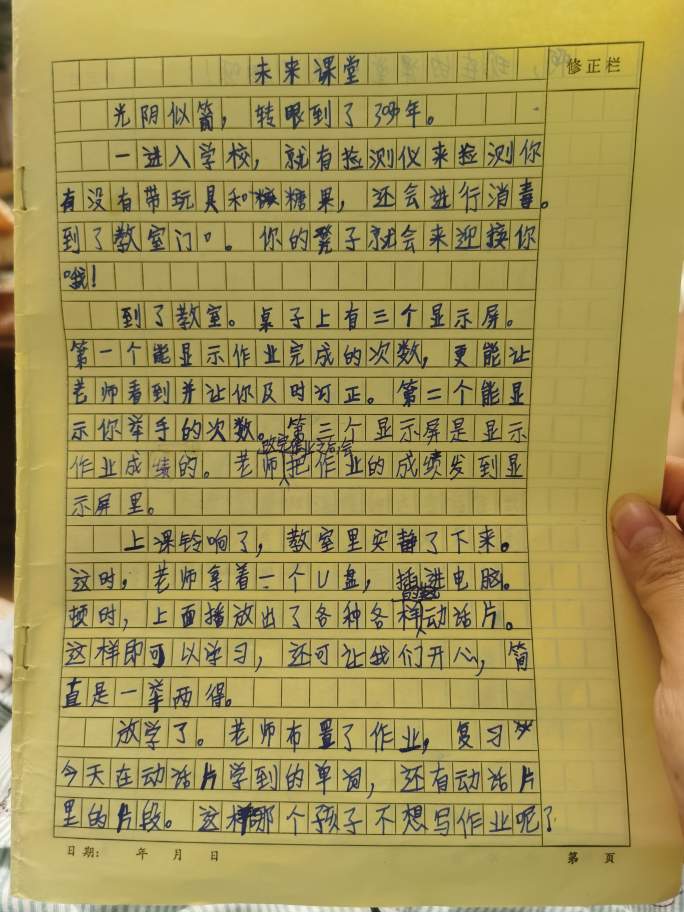 未来课堂
修正栏
光阴似箭，转眼到了3098年。
一进入学校，就有捡测仪来捡测你
有没有带玩具和糖果，还会进行消毒。
到了教室门口。你的凳子就会来迎接你
哦！
到了教室。桌子上有三个显示屏。
第一个能显示作业完成的次数，更能让
老师看到并让你及时订正。第二个能显
示你举手的次数。第三个显示屏是显示
改完作业之后，会
作业成绩的。老师把作业的成绩发到显
示屏里。
上课铃响了，教室里安静了下来。
这时，老师拿着一个U盘，插进电脑。
顿时，上面播放出了各种各样动话片。
这样即可以学习，还可让我们开心，简
直是一举两得。
放学了。老师布置了作业，复习
今天在动话片学到的单词，还有动话片
里的片段。这样哪个孩子不想写作业呢？
日期： 年 月 日
第 页